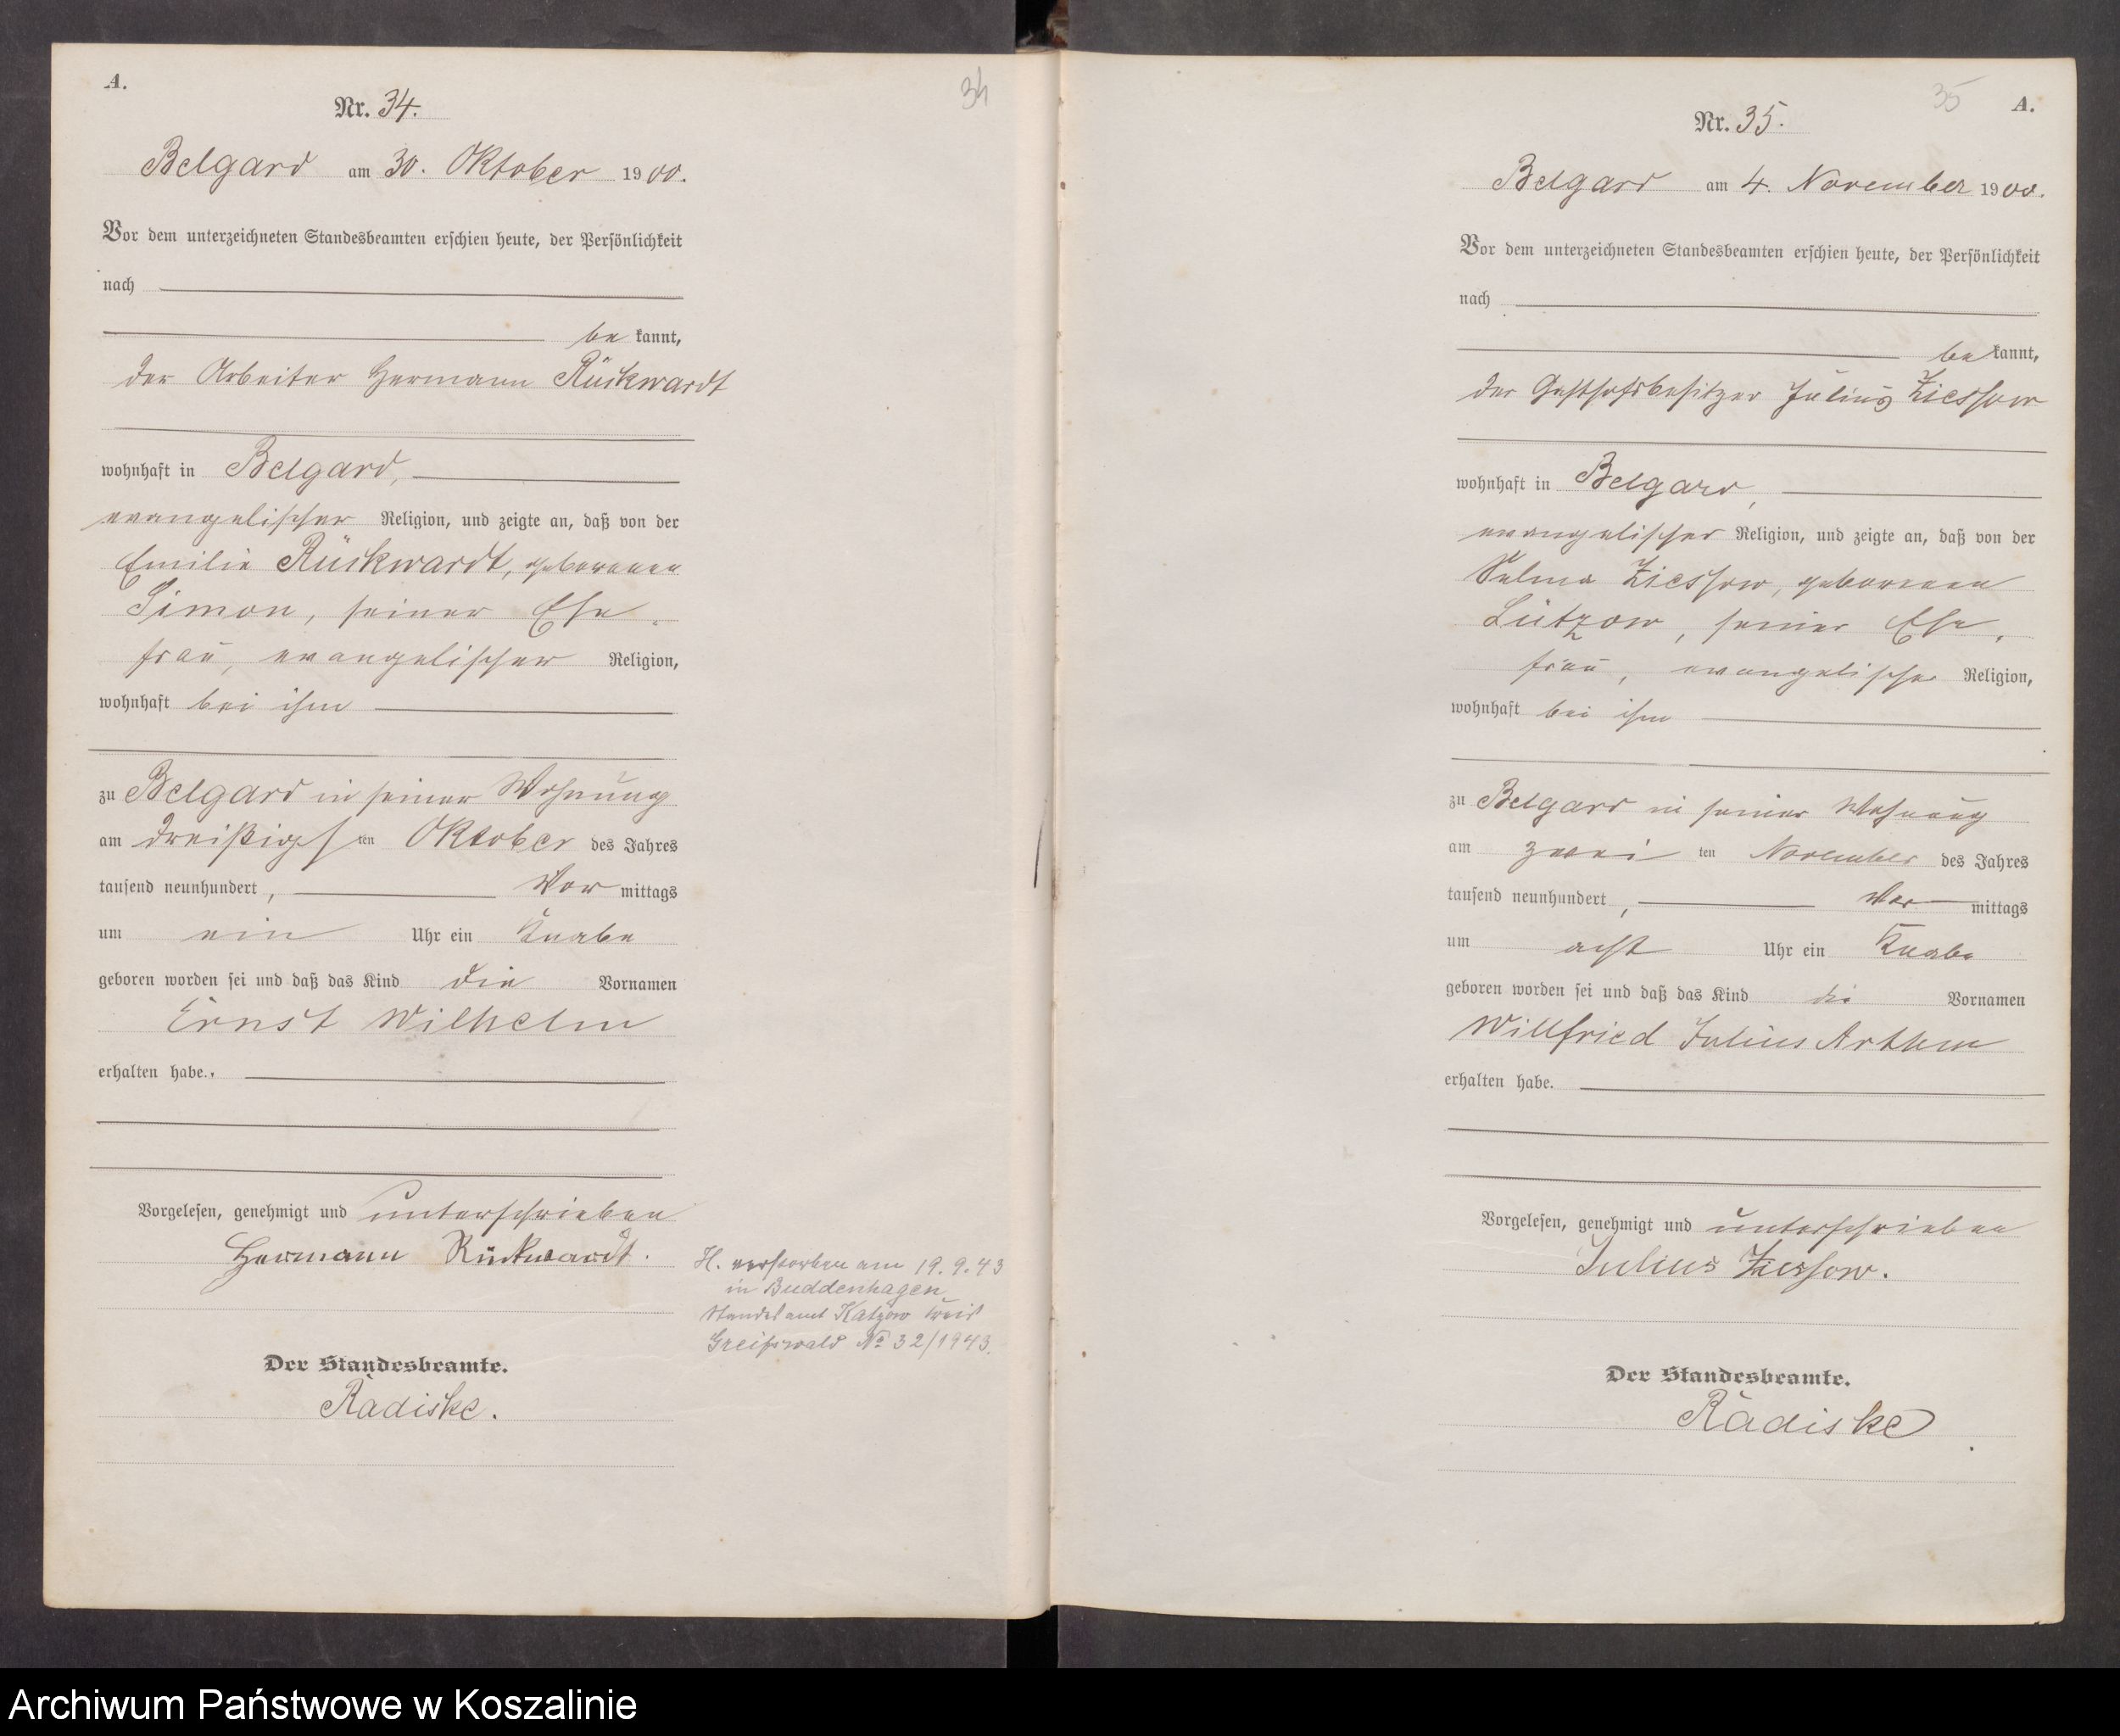 A.
34
Nr. 34.
Belgard am 30. Oktober 1900.
Vor dem unterzeichneten Standesbeamten erschien heute, der Persönlichkeit
nach
be kannt,
der Arbeiter Hermann Rückwardt
wohnhaft in Belgard,
evangelischer Religion, und zeigte an, daß von der
Emilie Rückwardt, geborenen
Simon, seiner Ehe
frau, evangelischer Religion,
wohnhaft bei ihm
zu Belgard in seiner Wohnung
am dreißigsten Oktober des Jahres
tausend neunhundert, Vor mittags
um ein Uhr ein Knabe
geboren worden sei und daß das Kind die Vornamen
Ernst Wilhelm
erhalten habe.
Vorgelesen, genehmigt und unterschrieben
Hermann Rückwardt.
H. verstorben am 19.9.43
in Buddenhagen
Standesamt Katzow Kreis
Greifswald № 32/1943.
Der Standesbeamte.
Radiske.
35 A.
Nr. 35.
Belgard am 4. November 1900.
Vor dem unterzeichneten Standesbeamten erschien heute, der Persönlichkeit
nach
be kannt,
der Gasthofsbesitzer Julius Ziessow
wohnhaft in Belgard,
evangelischer Religion, und zeigte an, daß von der
Selma Ziessow, geborenen
Lützow, seiner Ehe,
frau, evangelischer Religion,
wohnhaft bei ihm
zu Belgard in seiner Wohnung
am zwei ten November des Jahres
tausend neunhundert, Vor mittags
um acht Uhr ein Knabe
geboren worden sei und daß das Kind die Vornamen
Willfried Julius Arthur
erhalten habe.
Vorgelesen, genehmigt und unterschrieben
Julius Ziessow.
Der Standesbeamte.
Radiske
Archiwum Państwowe w Koszalinie